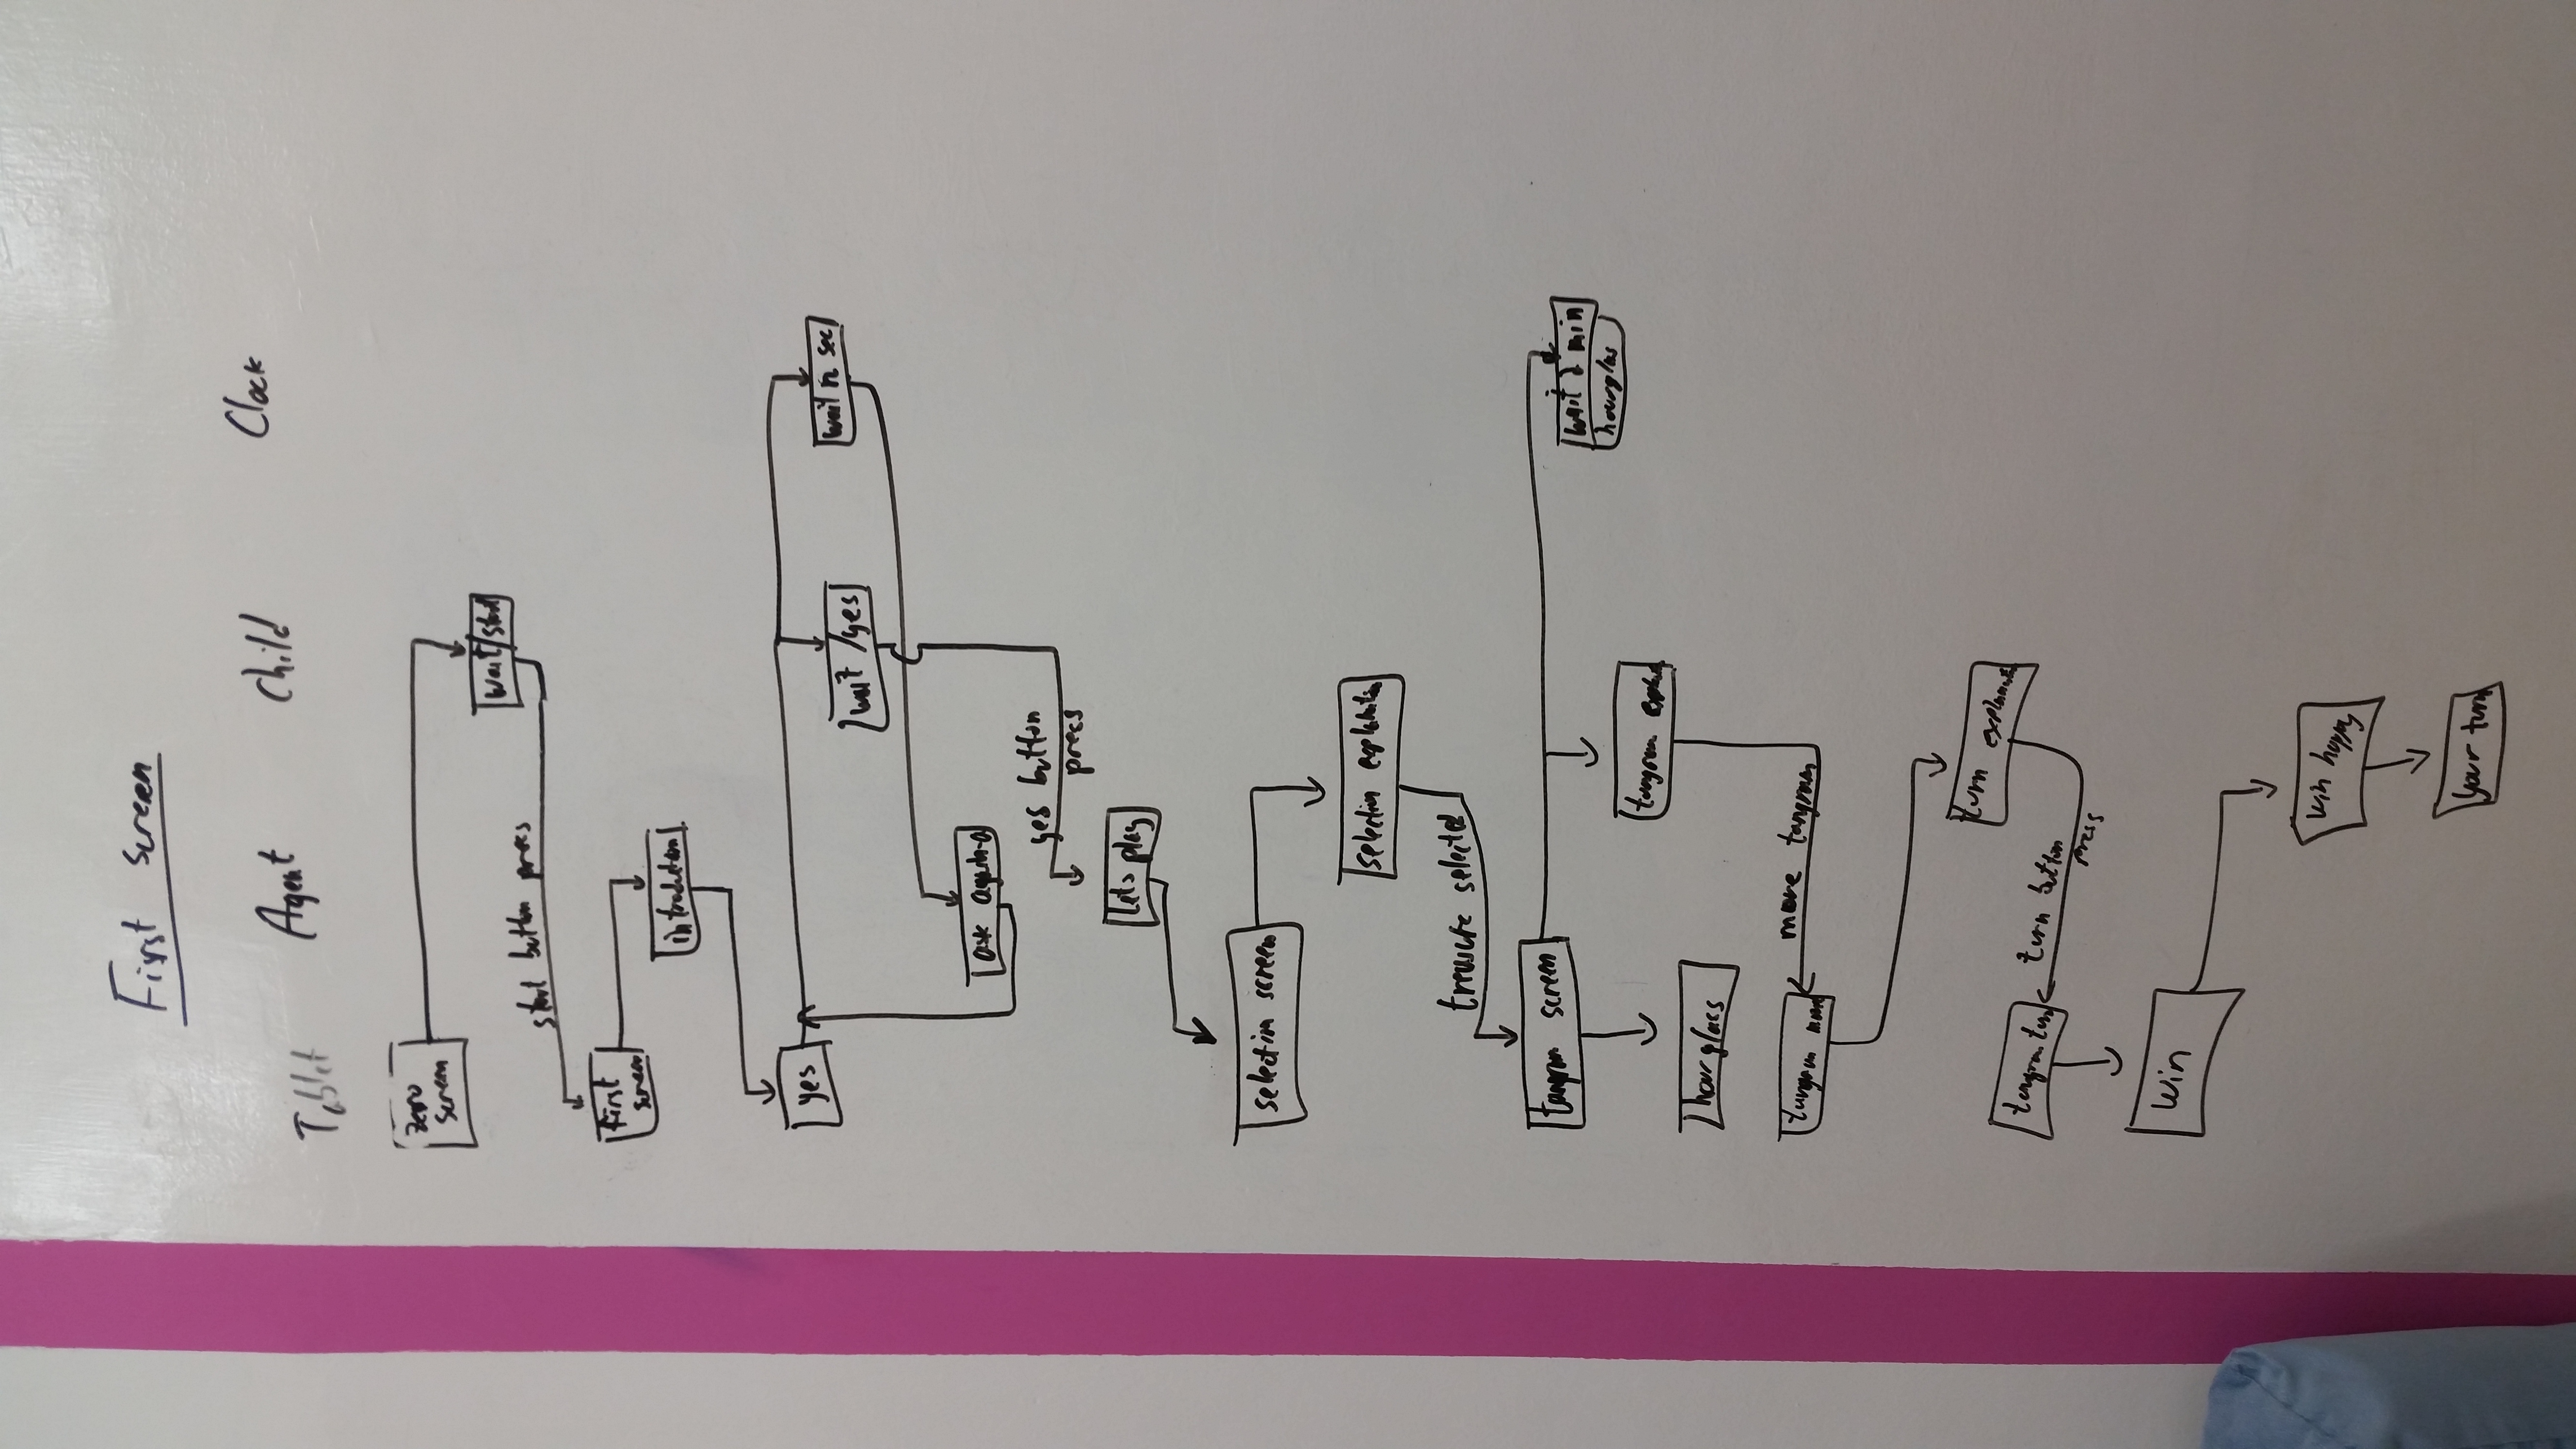 First screen
Tablet
Agent
Child
Clock
zero
screen
wait/start
start button press
First
screen
introduction
yes
wait/yes
wait n sec
ask again
yes button
press
Lets play
selection screen
selection explanation
treasure selected
tangram screen
wait 2 min
hourglass
tangram
hourglass
tangram move
move tangram
turn explanation
tangram turn
turn button
press
win
win happy
your turn